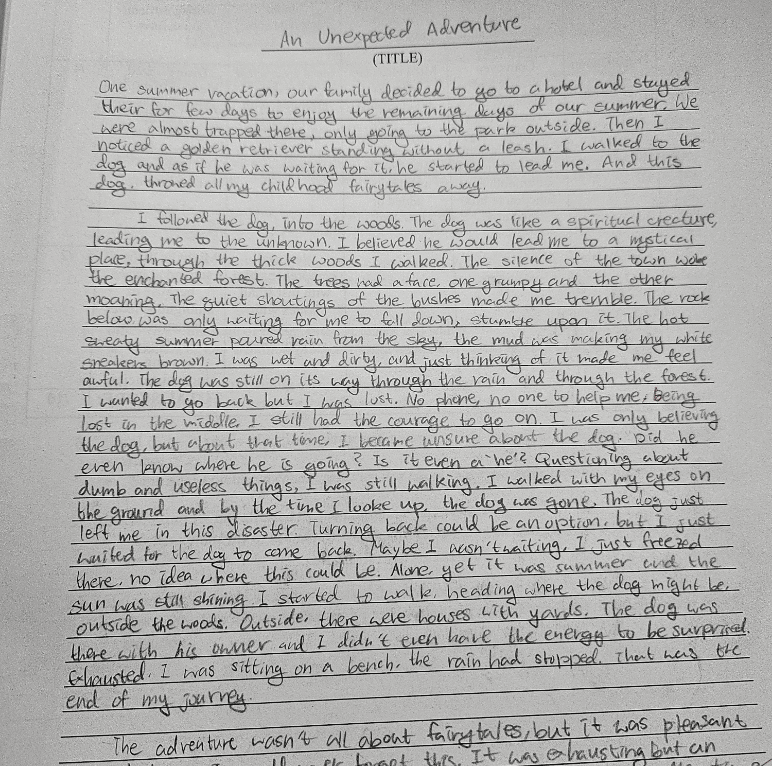 An Unexpected Adventure
(TITLE)
One summer vacation, our family decided to go to a hotel and stayed
their for few days to enjoy the remaining days of our summer. We
were almost trapped there, only going to the park outside. Then I
noticed a golden retriever standing without a leash. I walked to the
dog and as if he was waiting for it, he started to lead me. And this
dog, throned all my childhood fairytales away.
I followed the dog, into the woods. The dog was like a spiritual creature,
leading me to the unknown. I believed he would lead me to a mystical
place, through the thick woods I walked. The silence of the town woke
the enchanted forest. The trees had a face, one grumpy and the other
moaning. The quiet shoutings of the bushes made me tremble. The rock
below was only waiting for me to fall down, stumble upon it. The hot
sweaty summer poured rain from the sky, the mud was making my white
sneakers brown. I was wet and dirty, and just thinking of it made me feel
awful. The dog was still on its way through the rain and through the forest.
I wanted to go back but I was lost. No phone, no one to help me. Being
lost in the middle, I still had the courage to go on. I was only believing
the dog, but about that time, I became unsure about the dog. Did he
even know where he is going? Is it even a 'he'? Questioning about
dumb and useless things, I was still walking. I walked with my eyes on
the ground and by the time I looke up, the dog was gone. The dog just
left me in this disaster. Turning back could be an option, but I just
waited for the dog to come back. Maybe I wasn't waiting, I just freezed
there, no idea where this could be. Alone, yet it was summer and the
sun was still shining. I started to walk, heading where the dog might be,
outside the woods. Outside, there were houses with yards. The dog was
there with his owner and I didn't even have the energy to be surprised.
Exhausted, I was sitting on a bench, the rain had stopped. That was the
end of my journey.
The adventure wasn't all about fairytales, but it was pleasant
this. It was exhausting but an